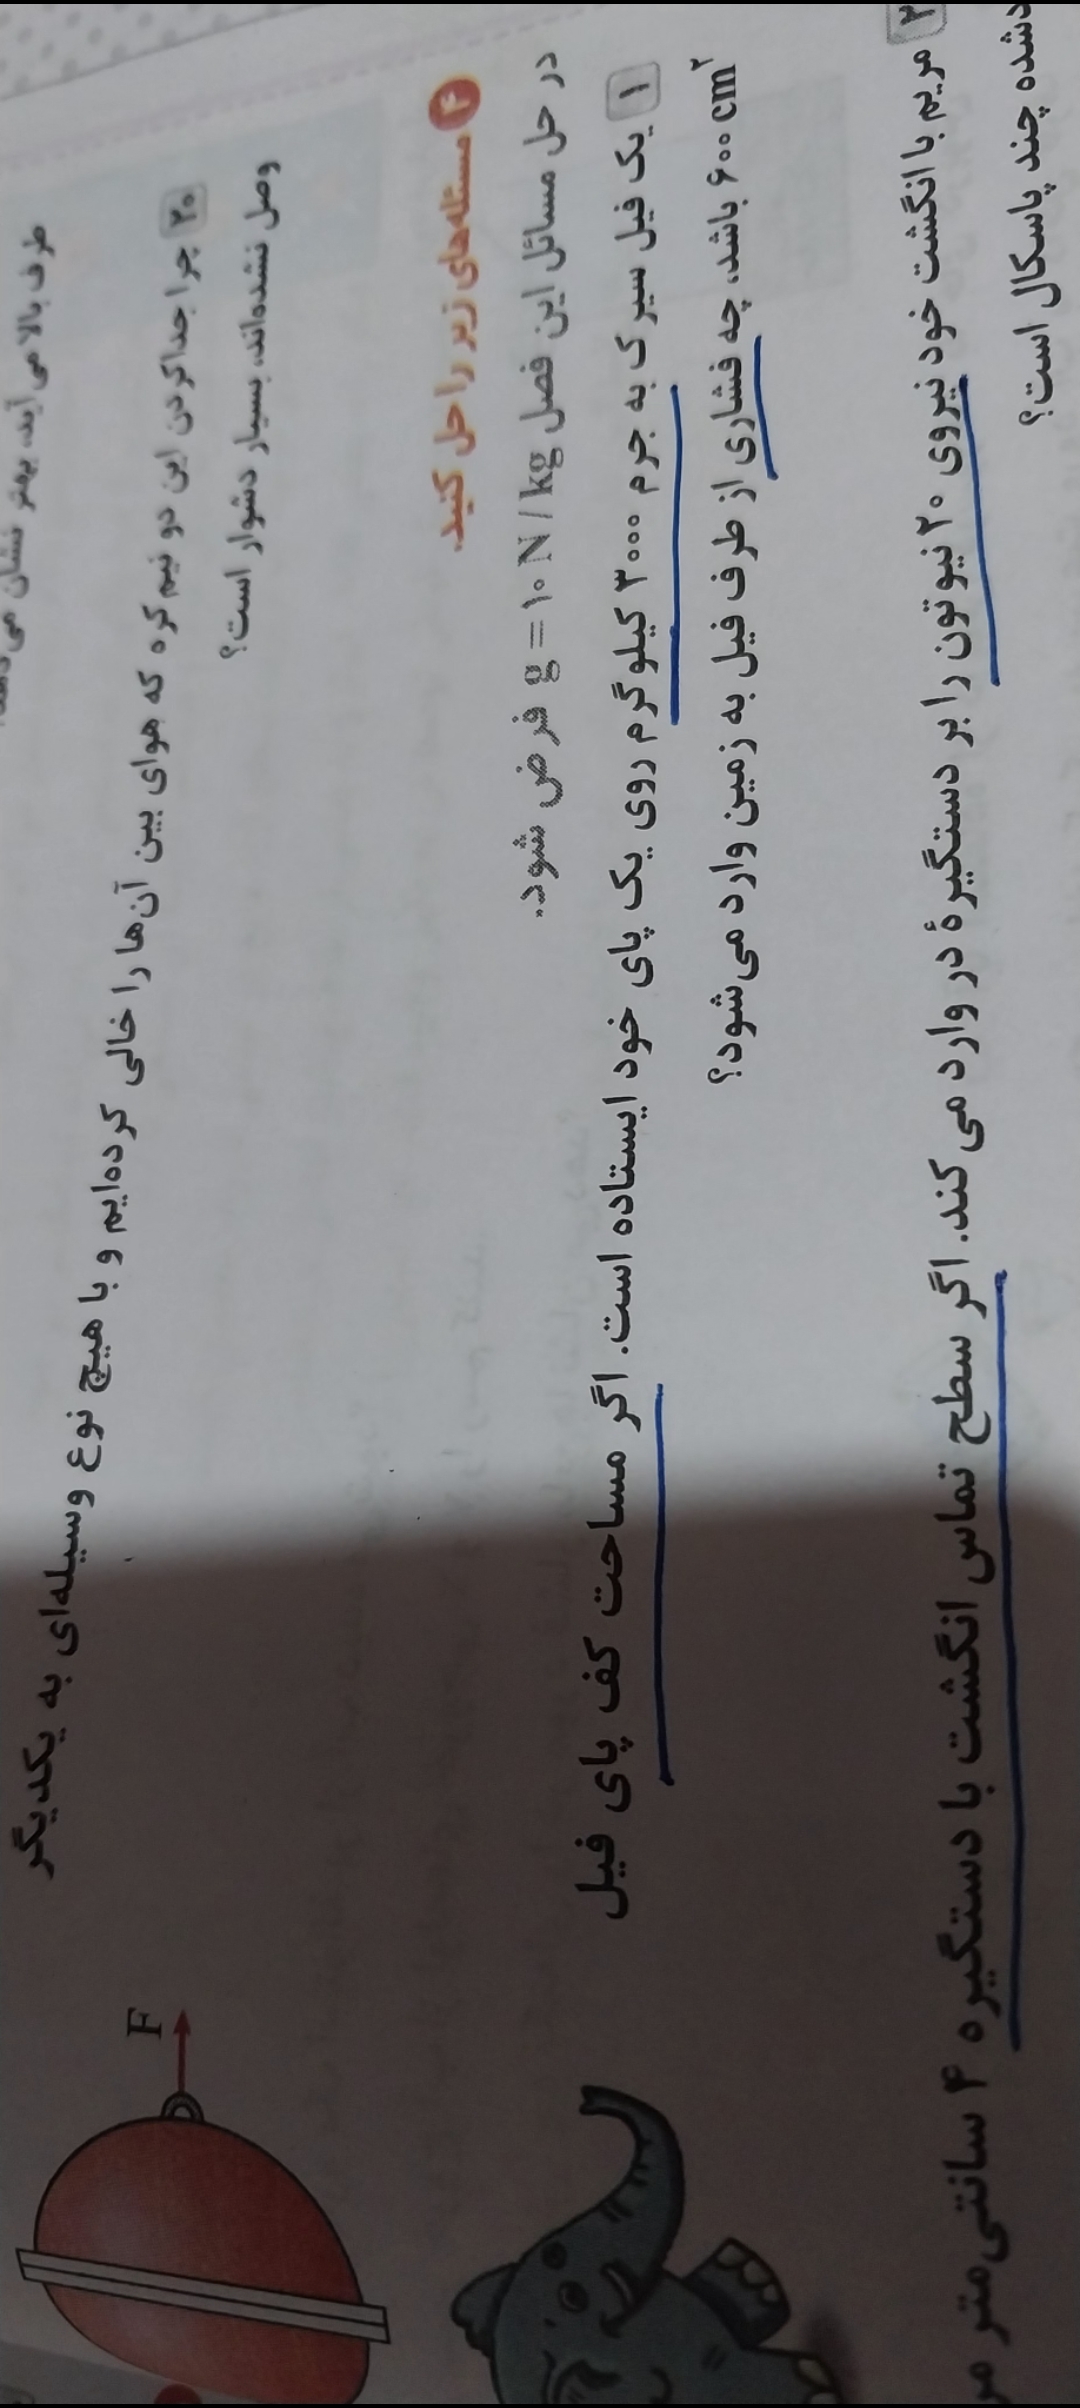 طرف بالا می‌آید، بهتر نشان می
۲۰ چرا جداکردن این دو نیم کره که هوای بین آن‌ها را خالی کرده‌ایم و با هیچ نوع وسیله‌ای به یکدیگر
وصل نشده‌اند، بسیار دشوار است؟
F
۴ مسئله‌های زیر را حل کنید.
در حل مسائل این فصل g = ۱۰ N / kg فرض شود.
۱ یک فیل سیرک به جرم ۳۰۰۰ کیلوگرم روی یک پای خود ایستاده است. اگر مساحت کف پای فیل
۶۰۰ cm۲ باشد، چه فشاری از طرف فیل به زمین وارد می‌شود؟
۲ مریم با انگشت خود نیروی ۲۰ نیوتون را بر دستگیرهٔ در وارد می کند. اگر سطح تماس انگشت با دستگیره ۴ سانتی‌متر
شده چند پاسکال است؟